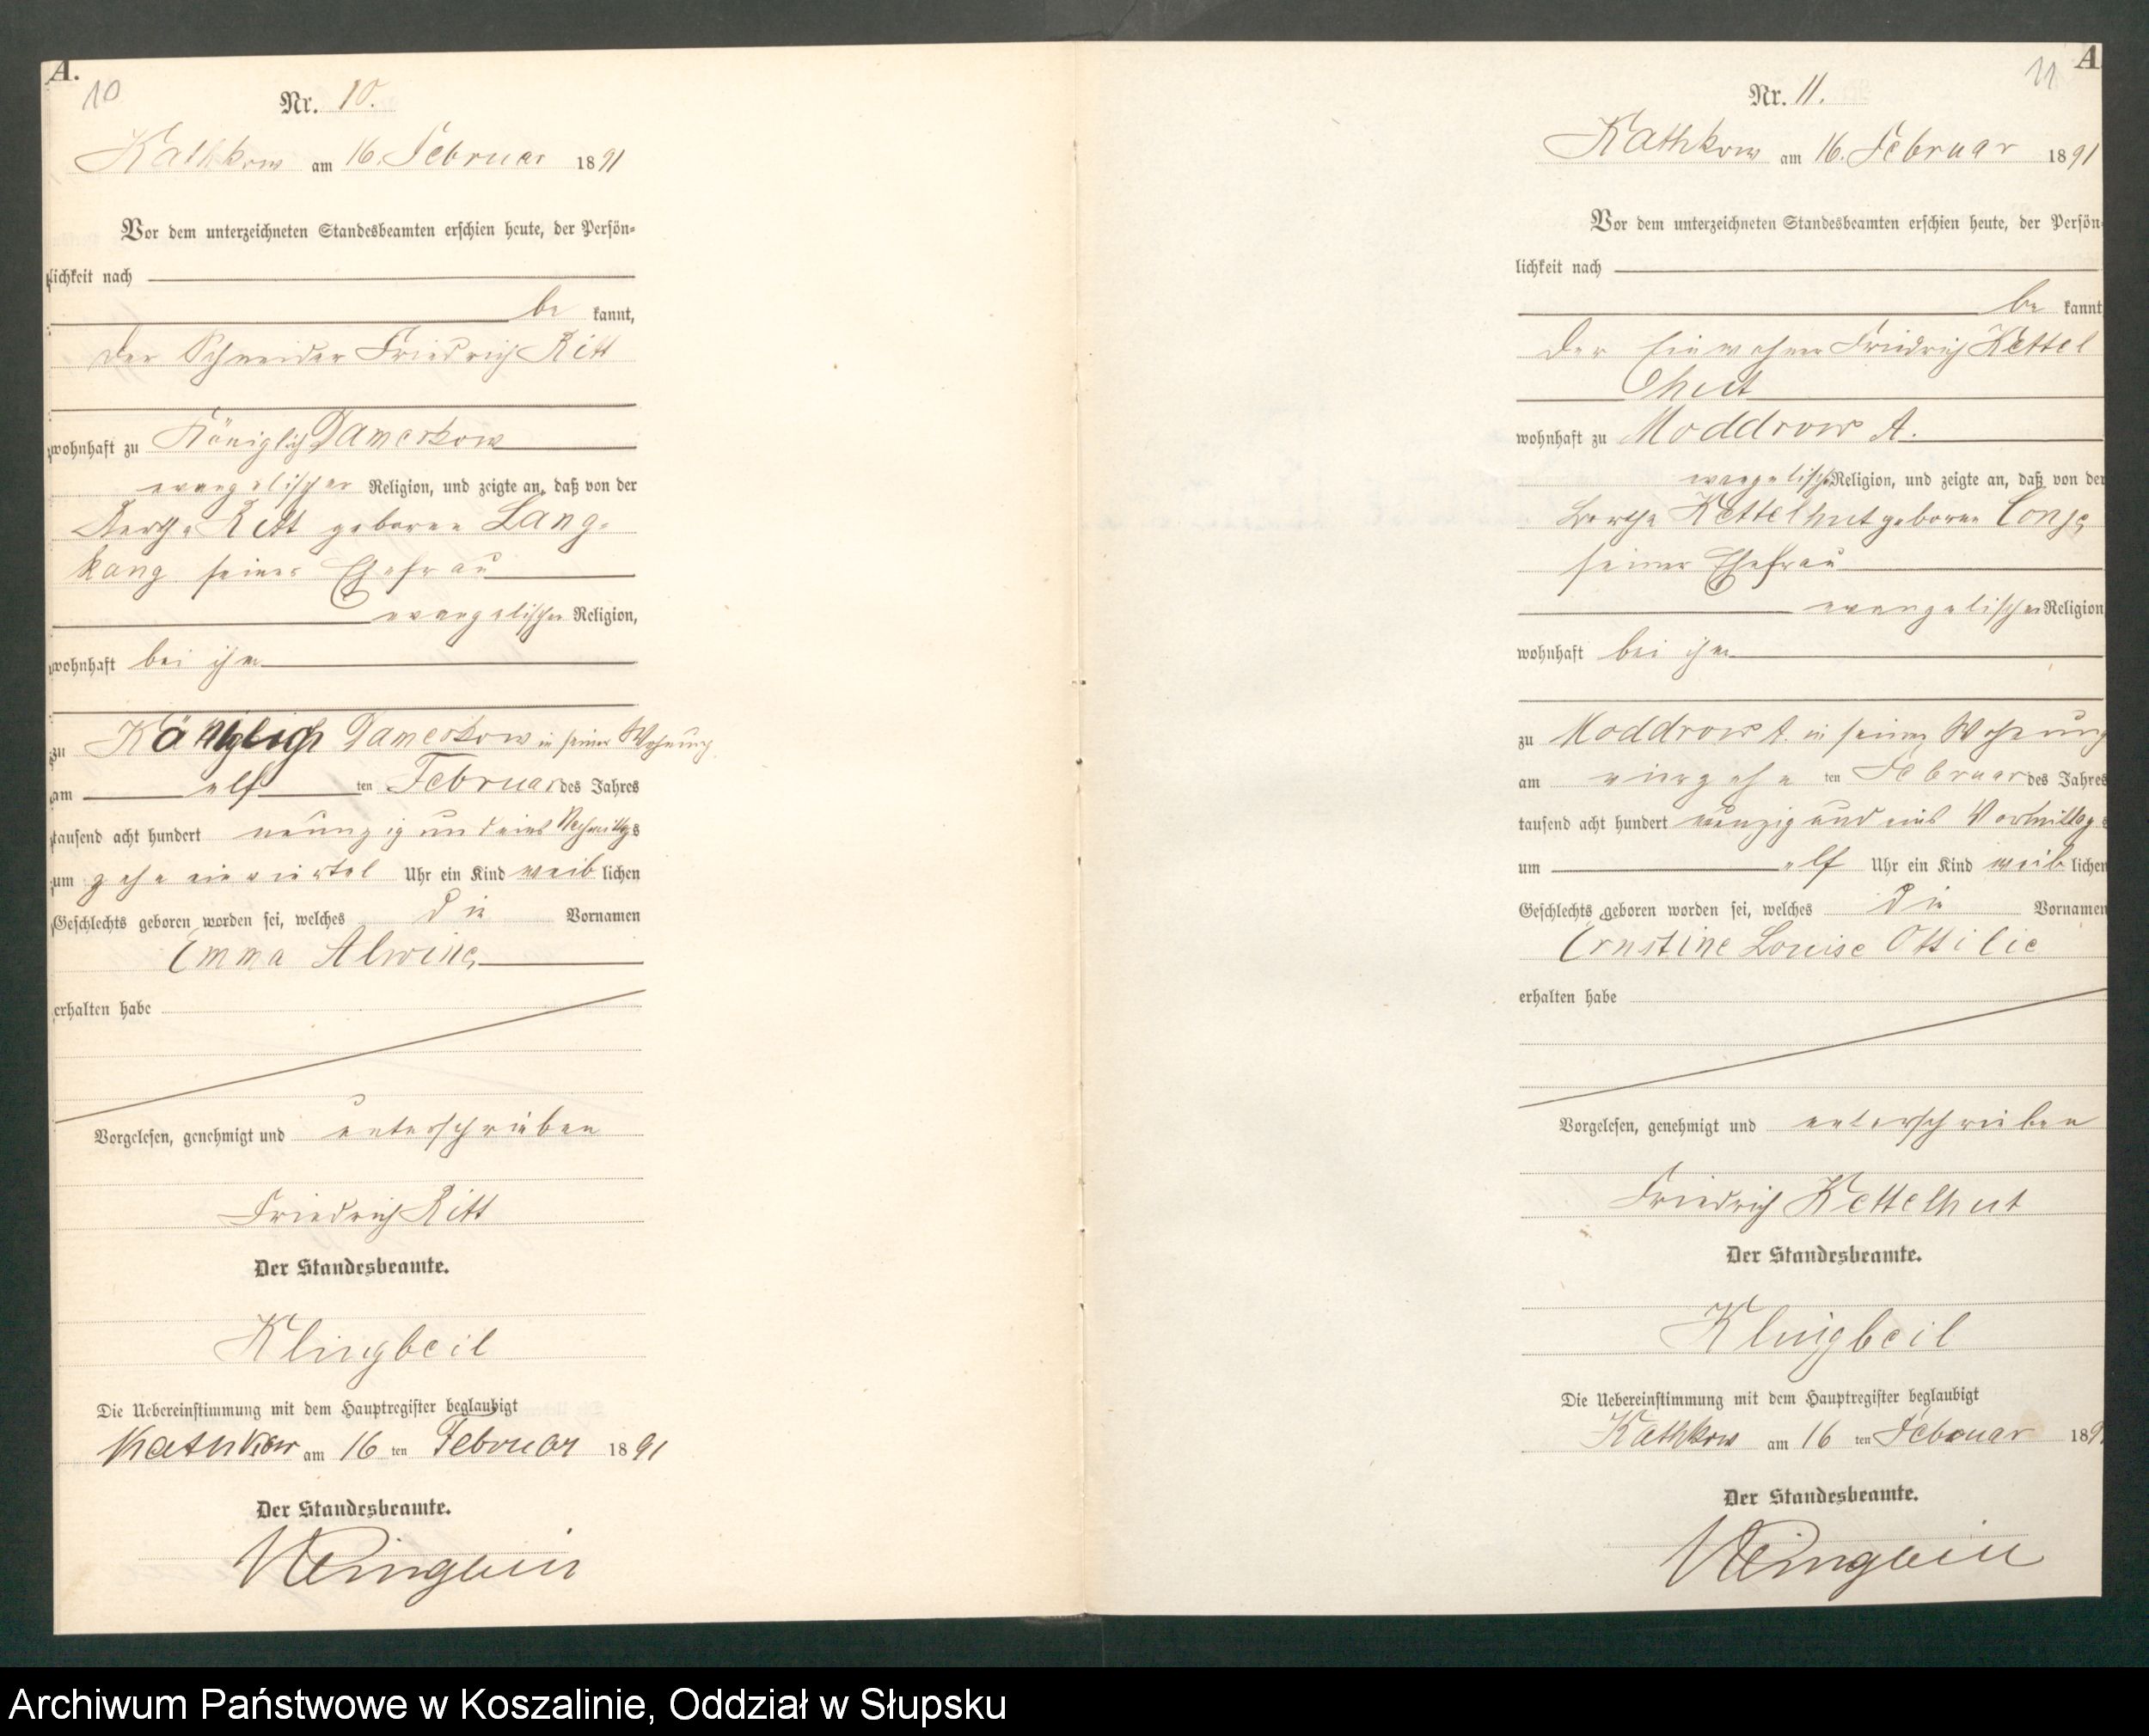 A.
10
Nr. 10.
Kathkow am 16. Februar 1891
Vor dem unterzeichneten Standesbeamten erschien heute, der Persön-
lichkeit nach
be kannt,
der Schneider Friedrich Ritt
wohnhaft zu Königlich Damerkow
evangelischer Religion, und zeigte an, daß von der
Bertha Ritt geborne Lang-
kang seiner Ehefrau
evangelischer Religion,
wohnhaft bei ihm
zu Königlich Damerkow in seiner Wohnung
am elf ten Februar des Jahres
tausend acht hundert neunzig und eins Nachmittags
um zehn einviertel Uhr ein Kind weib lichen
Geschlechts geboren worden sei, welches die Vornamen
Emma Alwine
erhalten habe
Vorgelesen, genehmigt und unterschrieben
Friedrich Ritt
Der Standesbeamte.
Klingbeil
Die Uebereinstimmung mit dem Hauptregister beglaubigt
Kathkow am 16 ten Februar 1891
Der Standesbeamte.
Klingbeil
A
11
Nr. 11.
Kathkow am 16. Februar 1891
Vor dem unterzeichneten Standesbeamten erschien heute, der Persön
lichkeit nach
be kannt
der Einwohner Friedrich Kettel
hut
wohnhaft zu Moddrow A.
evangelisch Religion, und zeigte an, daß von der
Bertha Kettelhut geborne
seiner Ehefrau
evangelischer Religion
wohnhaft bei ihm
zu Moddrow A. in seiner Wohnung
am vierzehn ten Februar des Jahres
tausend acht hundert neunzig und eins Vormittags
um elf Uhr ein Kind weib lichen
Geschlechts geboren worden sei, welches die Vornamen
Ernstine Louise Ottilie
erhalten habe
Vorgelesen, genehmigt und unterschrieben
Friedrich Kettelhut
Der Standesbeamte.
Klingbeil
Die Uebereinstimmung mit dem Hauptregister beglaubigt
Kathkow am 16 ten Februar 189
Der Standesbeamte.
Klingbeil
Archiwum Państwowe w Koszalinie, Oddział w Słupsku